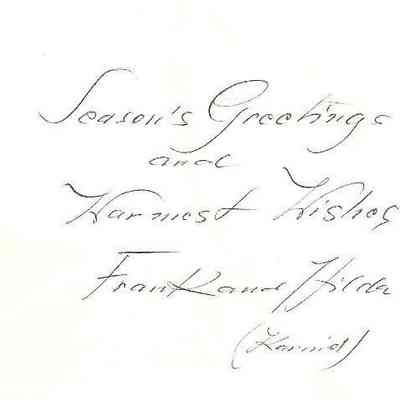 Season's Greetings
and
Warmest Wishes
Frank and Hilda